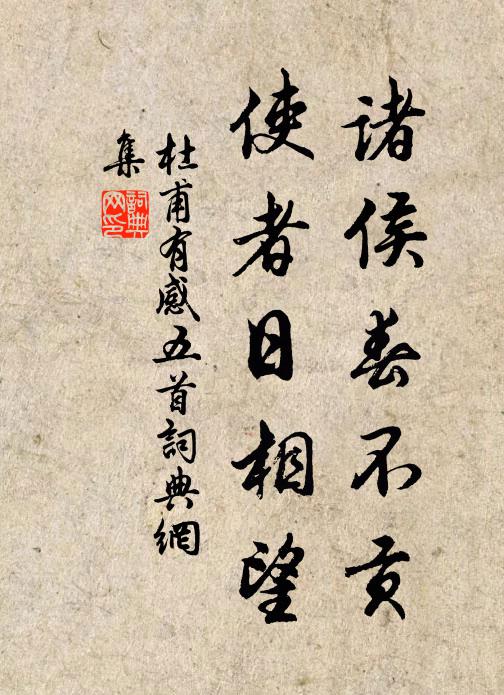 诸侯春不贡
使者日相望
杜甫有感五首詞典網
集
詞典网印